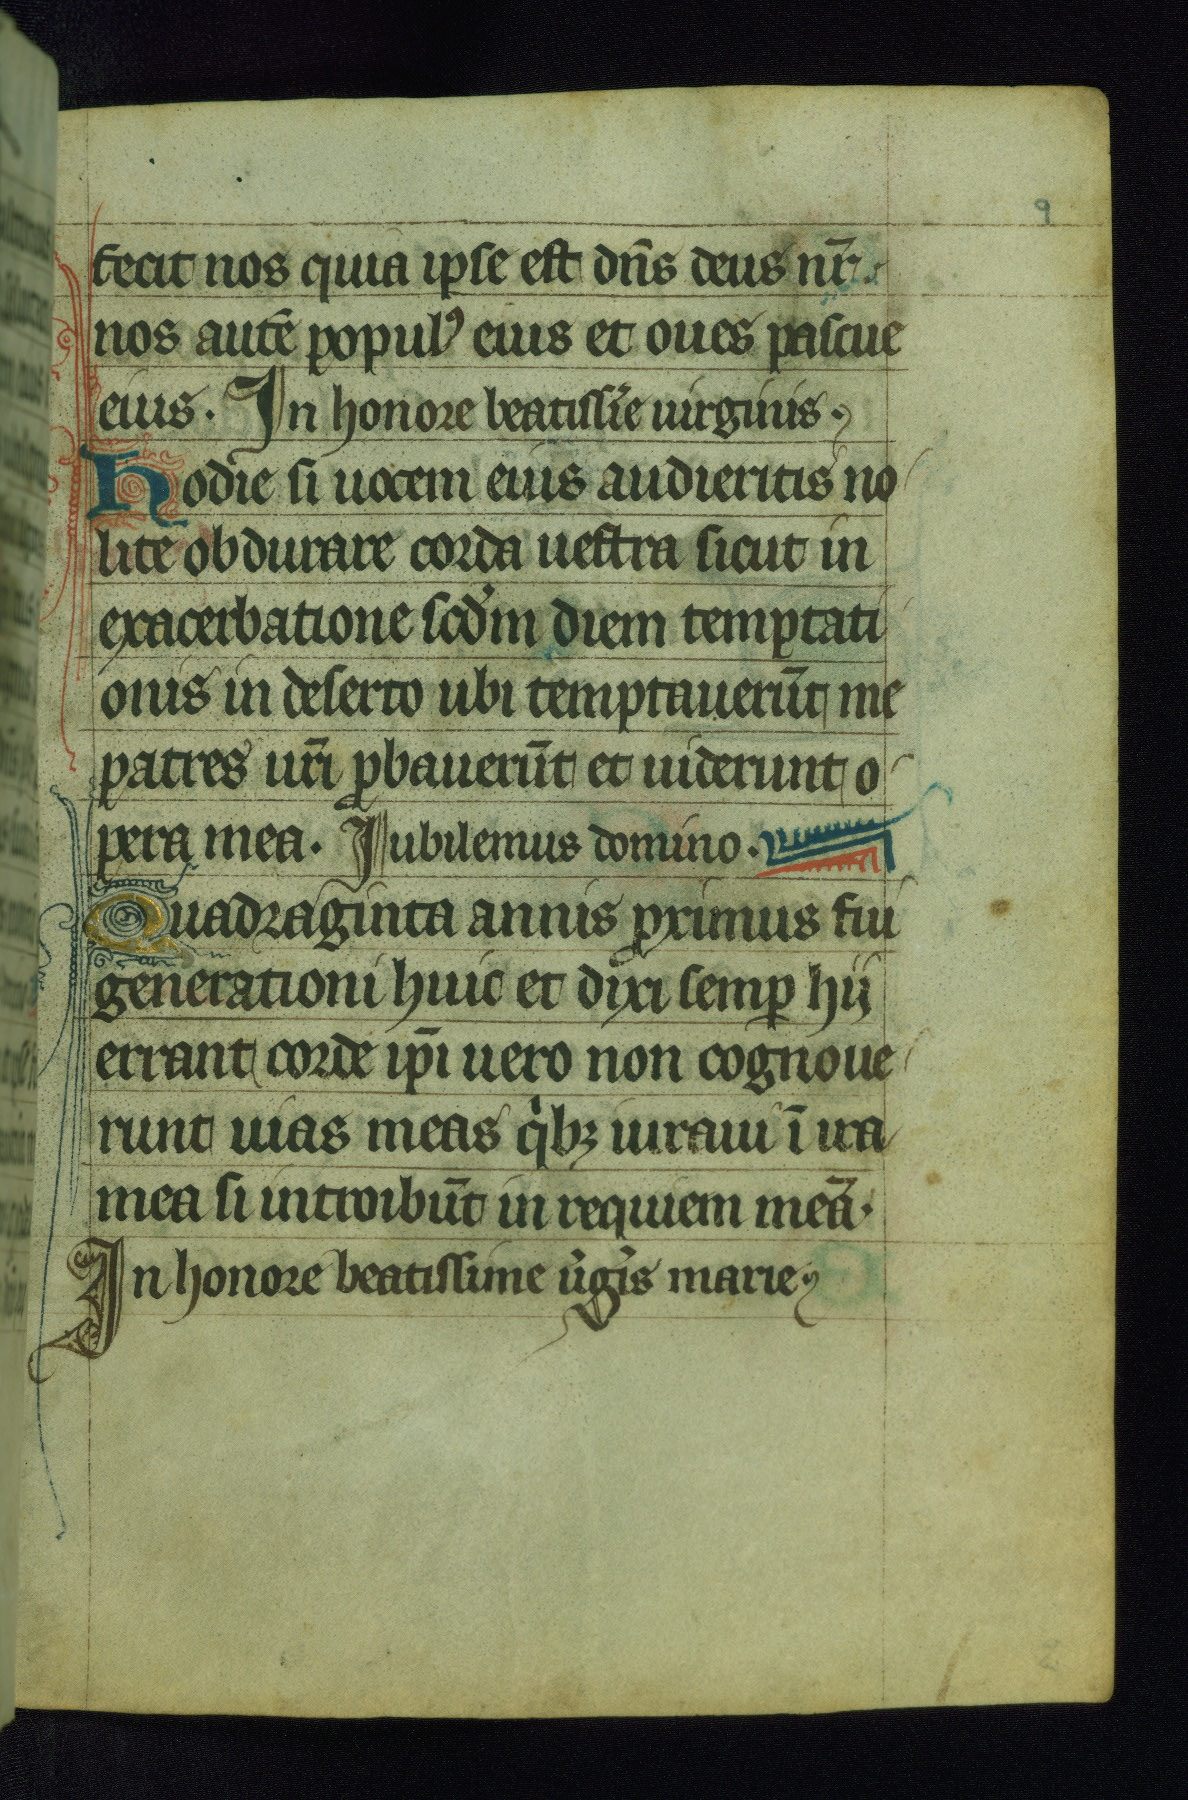 9
fecit nos quia ipse est dn̄s deus nr̄.
nos autē popul᾿ eius et oues pascue
eius. In honore beatissīe uirginis.
Hodie si uocem eius audieritis no
lite obdurare corda uestra sicut in
exacerbatione scd̓m diem temptati
onis in deserto ubi temptauerūt me
patres ur̄i ꝓbauerūt et uiderunt o
pera mea. Iubilemus domino.
Quadraginta annis ꝓximus fui
generationi huic et dixi semꝑ hij
errant corde ip̄i uero non cognoue
runt uias meas qͥbꝫ iuraui ī ira
mea si introibūt in requiem meā.
In honore beatissime u̓gi̓s marie